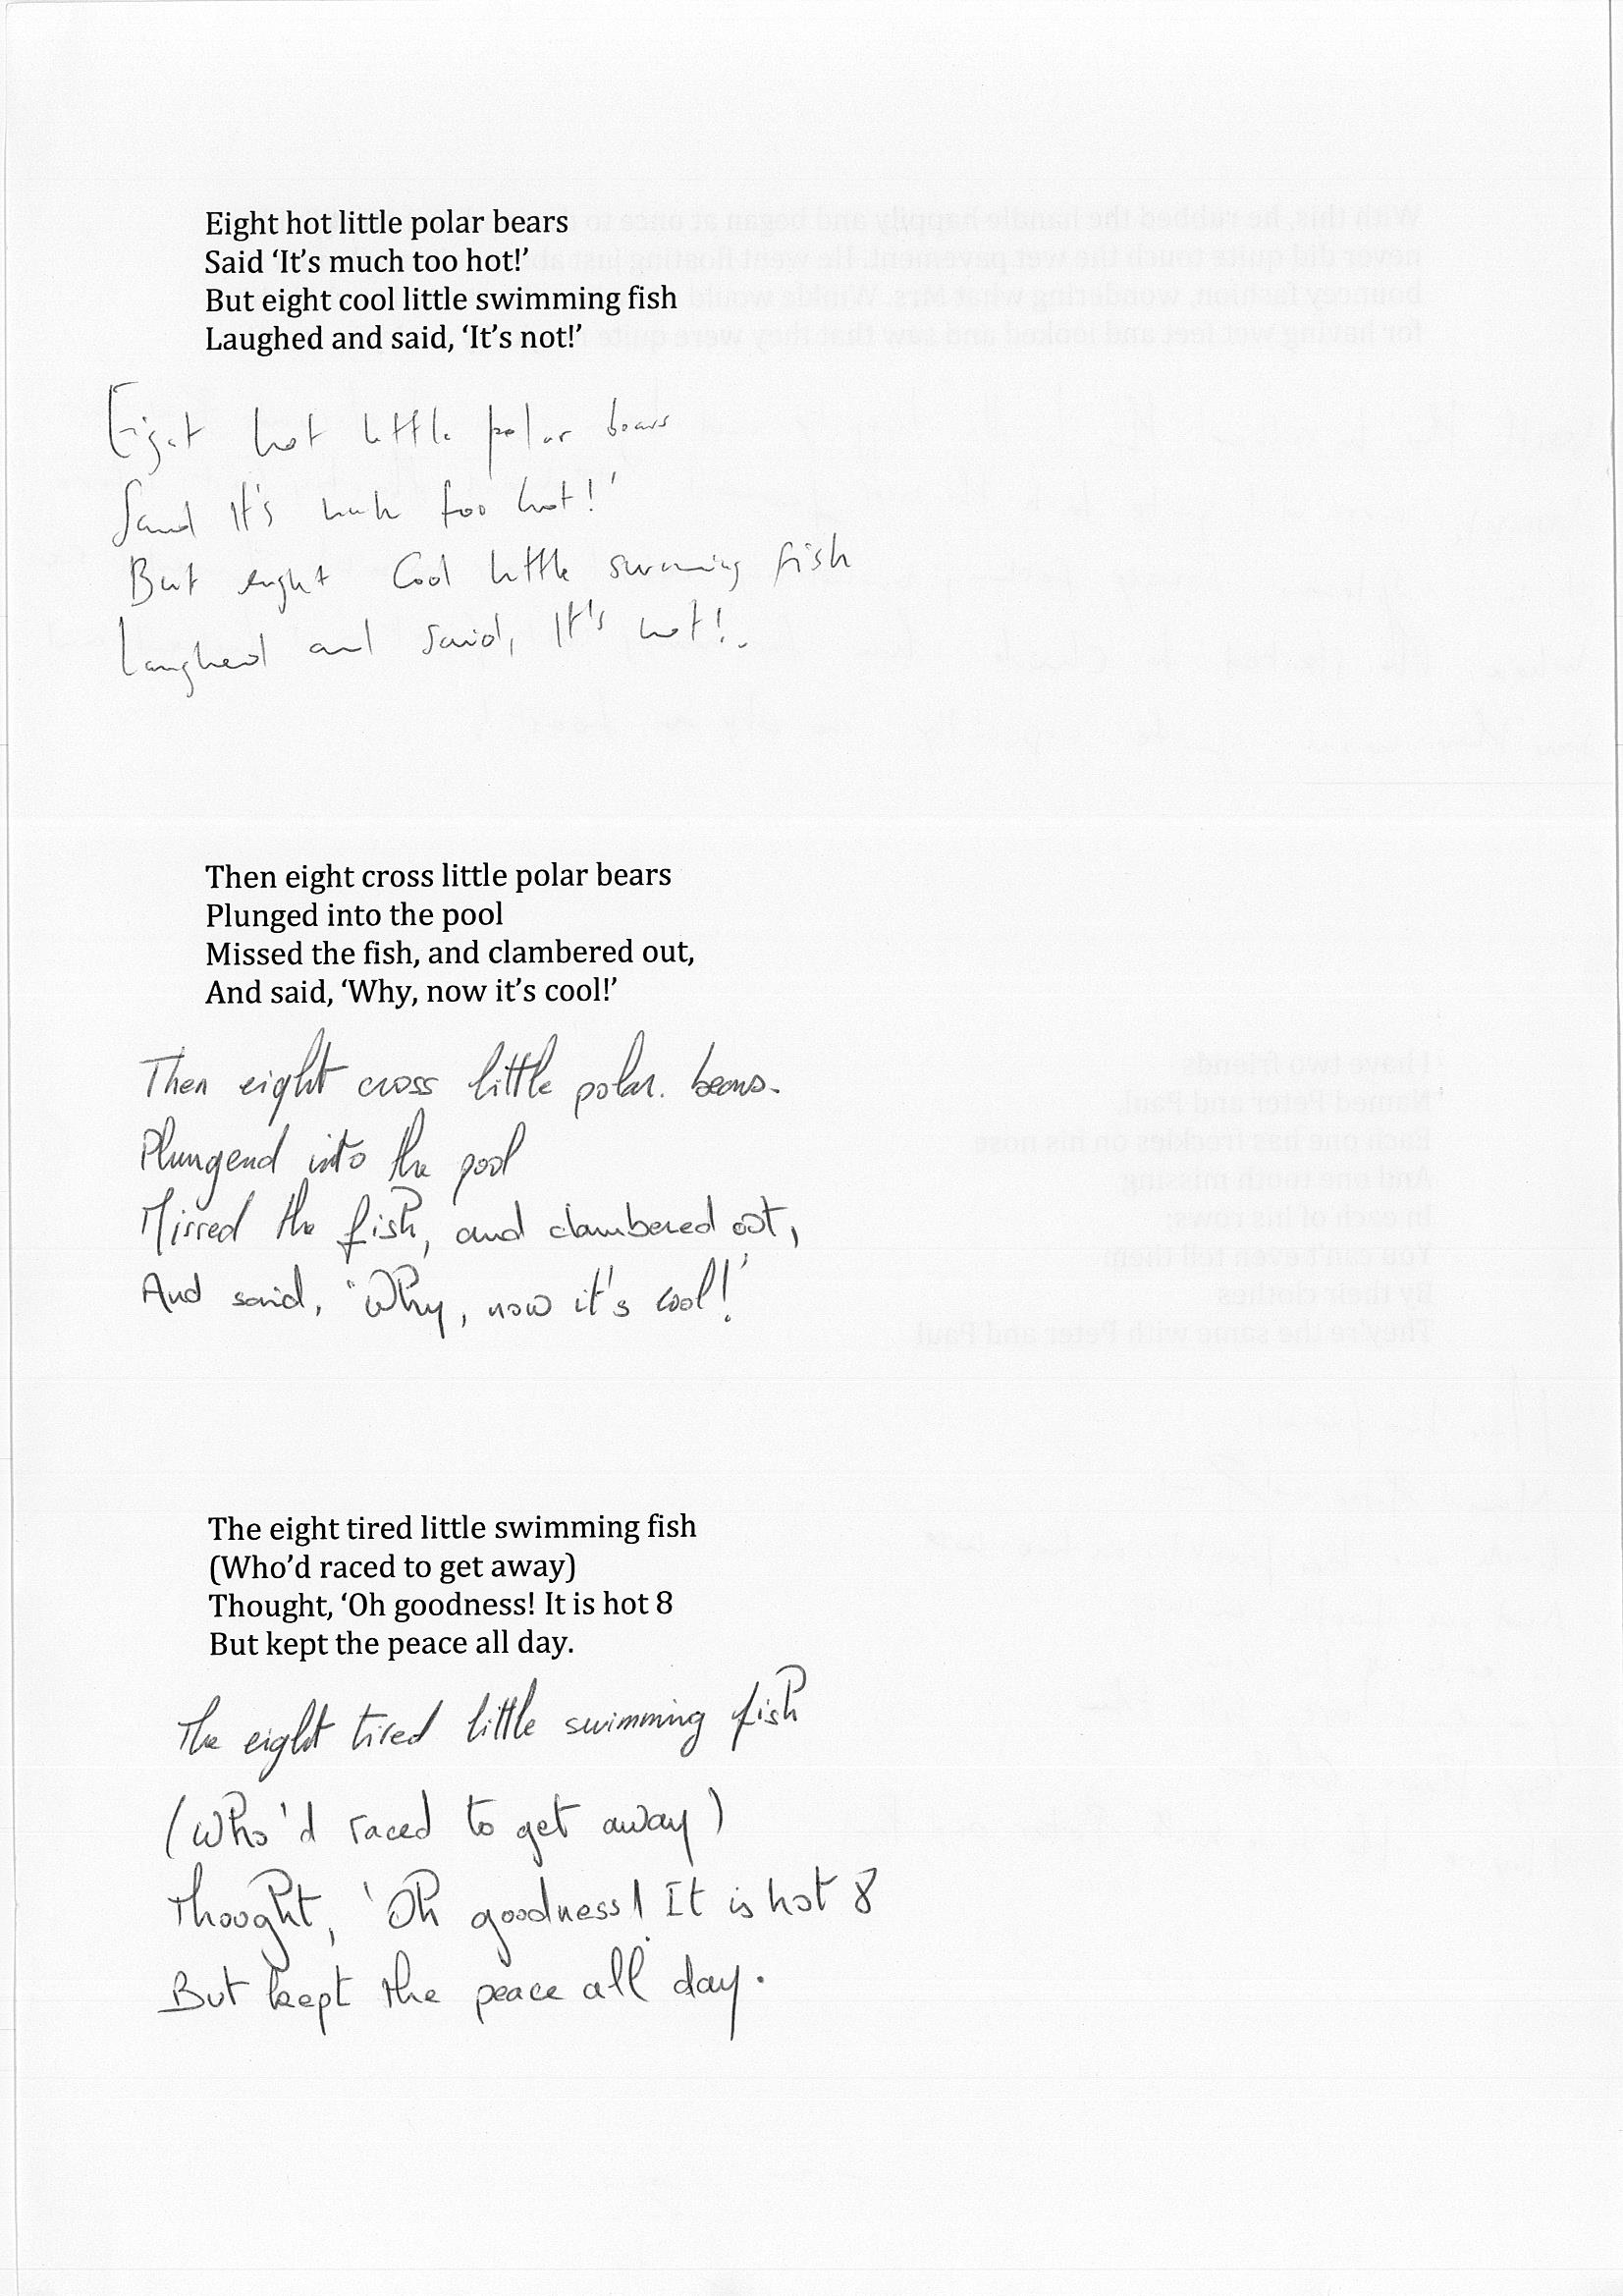 Eight hot little polar bears
Said ‘It’s much too hot!’
But eight cool little swimming fish
Laughed and said, ‘It’s not!’
Eight hot little polar bears
Said It's much too hot!'
But eight Cool little swimming fish
Laughed and said, It's not!.
Then eight cross little polar bears
Plunged into the pool
Missed the fish, and clambered out,
And said, ‘Why, now it’s cool!’
Then eight cross little polar. bears.
Plungend into the pool
Missed the fish, and clambered out,
And said, 'Why, now it's cool!'
The eight tired little swimming fish
(Who’d raced to get away)
Thought, ‘Oh goodness! It is hot 8
But kept the peace all day.
The eight tired little swimming fish
(Who'd raced to get away)
Thought, 'Oh goodness! It is hot 8
But kept the peace all day.